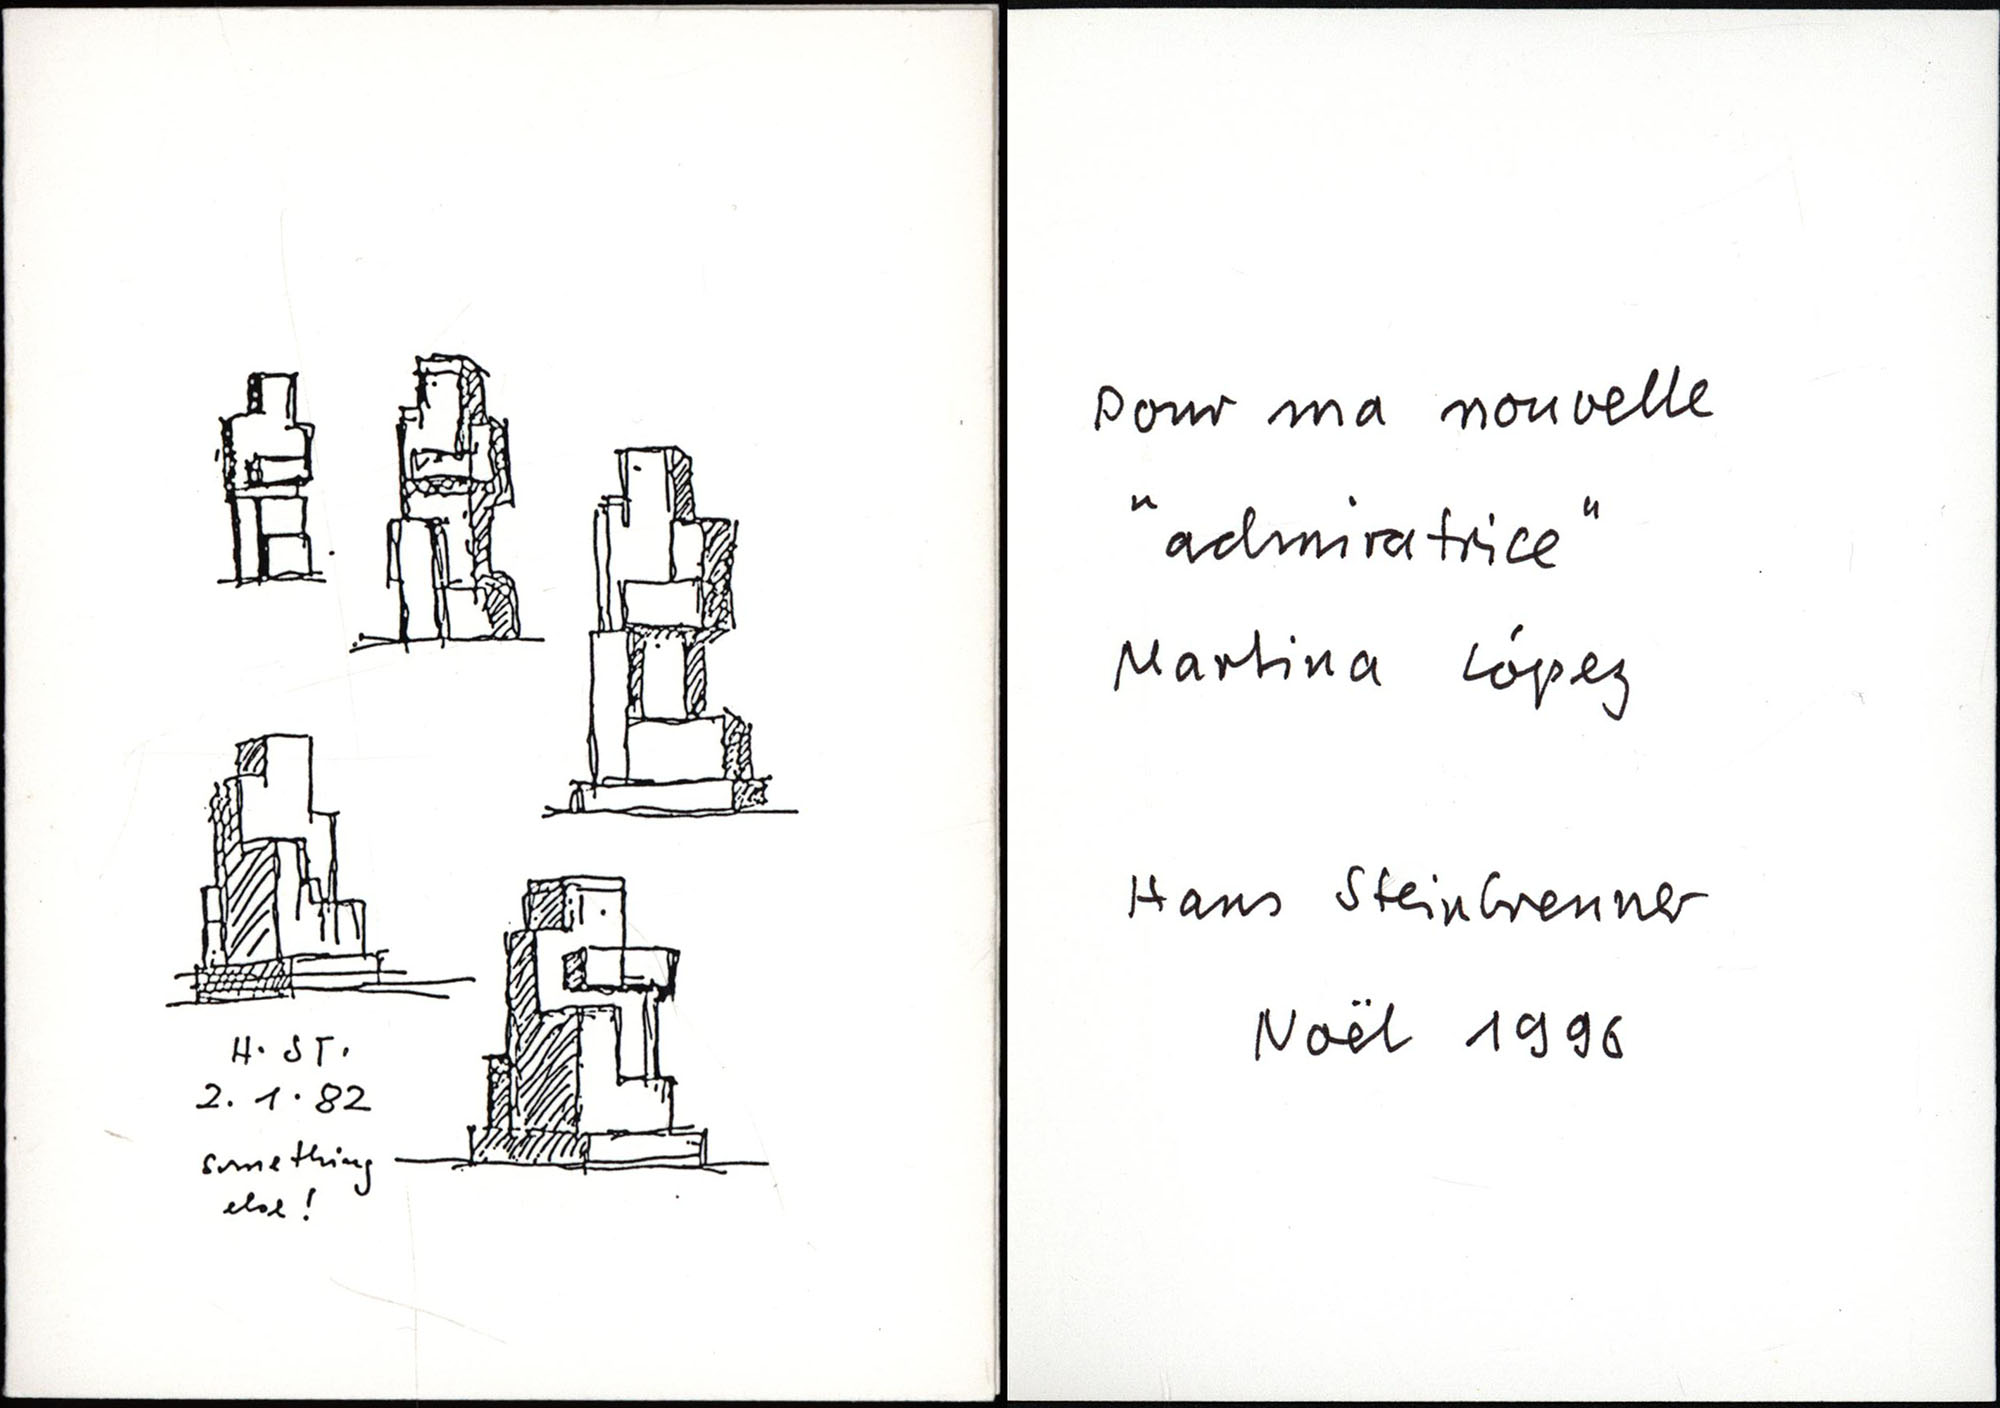 H. ST.
2.1.82
something
else!
pour ma nouvelle
"admiratrice"
Martina López
Hans Steinbrenner
Noël 1996